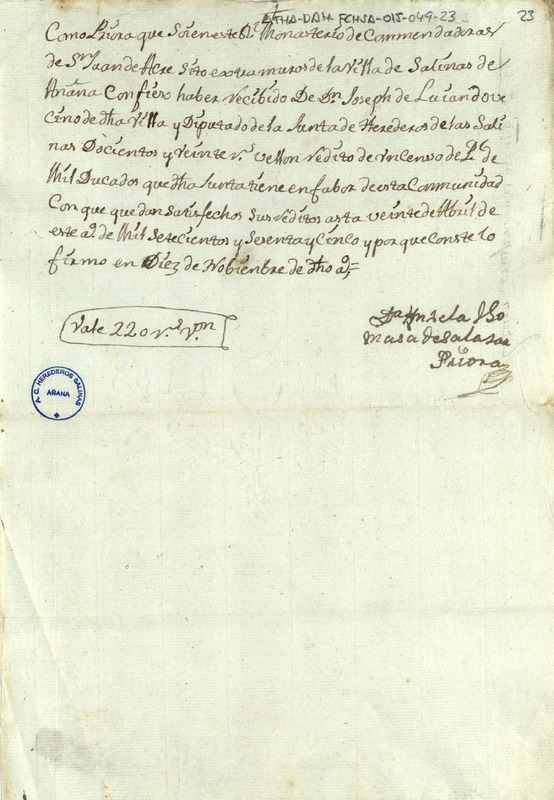 ATHA-DAH-FCHSA-015-049-23
23
Como Priora que Soi en este Rl. Monasterio de Commendadoras
de Sn. Juan de Acre Sito extramuros de la Villa de Salinas de
Añana Confieso haber recibido De Dn. Joseph de Luiando ve
cino de dha Villa y Diputado de la Junta de Herederos de las Sali
nas Dócientos y veinte rs. vellon redito de vn censo de Pl. de
Mil Ducados que dha Junta tiene en fabor de esta Communidad
Con que quedan satisfechos sus reditos asta veinte de Abril de
este aº. de Mil Setecientos y Sesenta y Cinco y porque conste lo
firmo en Diez de Nobiembre de dho aº.=
Vale 220 rs. von
Da Angela
masa de Salazar
Priora
A. C. HEREDEROS SALINAS
AÑANA